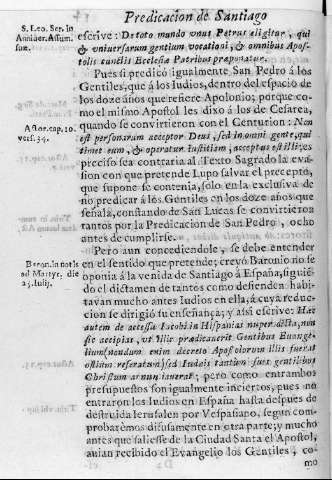 Predicacion de Santiago
S. Leo. Ser. in
Anniuer. Assum.
sum.
escrive: De toto mundo vnus Petrus eligitur, qui
& vniversarum gentium vocationi, & omnibus Apos-
tolis cunctis Ecclesia Patribus præponatur.
Pues si predicó igualmente San Pedro á los
Gentiles, que á los Iudios, dentro del espacio de
los doze años que refiere Apolonio; porque co-
mo el mismo Apostol les dixo á los de Cesarea,
quando se convirtieron con el Centurion: Non
Actor. cap. 10.
vers. 34.
est personarum acceptor Deus, sed in omni gente, qui
timet eum, & operatur iustitiam, acceptus est illi; es
preciso sea contraria al Texto Sagrado la eva-
sion con que pretende Lupo salvar el precepto,
que supone se contenia, solo en la exclusiva de
no predicar á los Gentiles en los doze años que
señala, constando de San Lucas se convirtieron
tantos por la Predicacion de San Pedro, ocho
antes de cumplirse.
Pero aun concediendole, se debe entender
en el sentido que pretende; creyó Baronio no se
Baron. in notis
ad Martyr. die
25. Iulij.
oponia á la venida de Santiago á España, siguié-
do el dictamen de tantos como defienden habi-
tavan mucho antes Iudios en ella, á cuya reduc-
cion se dirigió su enseñança; y assi escrive: Hæc
autem de accessu Iacobi in Hispanias nuper dicta, non
sic accipias, vt illic prædicaverit Gentibus Evange-
lium (nondum enim decreto Apostolorum illis fuerat
ostium reseratum) sed Iudæis tantùm sunt gentilibus
Christum annunciaverat; pero como entrambos
presupuestos son igualmente inciertos, pues no
entraron los Iudios en España hasta despues de
destruida Ierusalen por Vespasiano, segun com-
probarémos difusamente en otra parte; y mucho
antes que saliesse de la Ciudad Santa el Apostol,
auian recibido el Evangelio los Gentiles, co-
mo